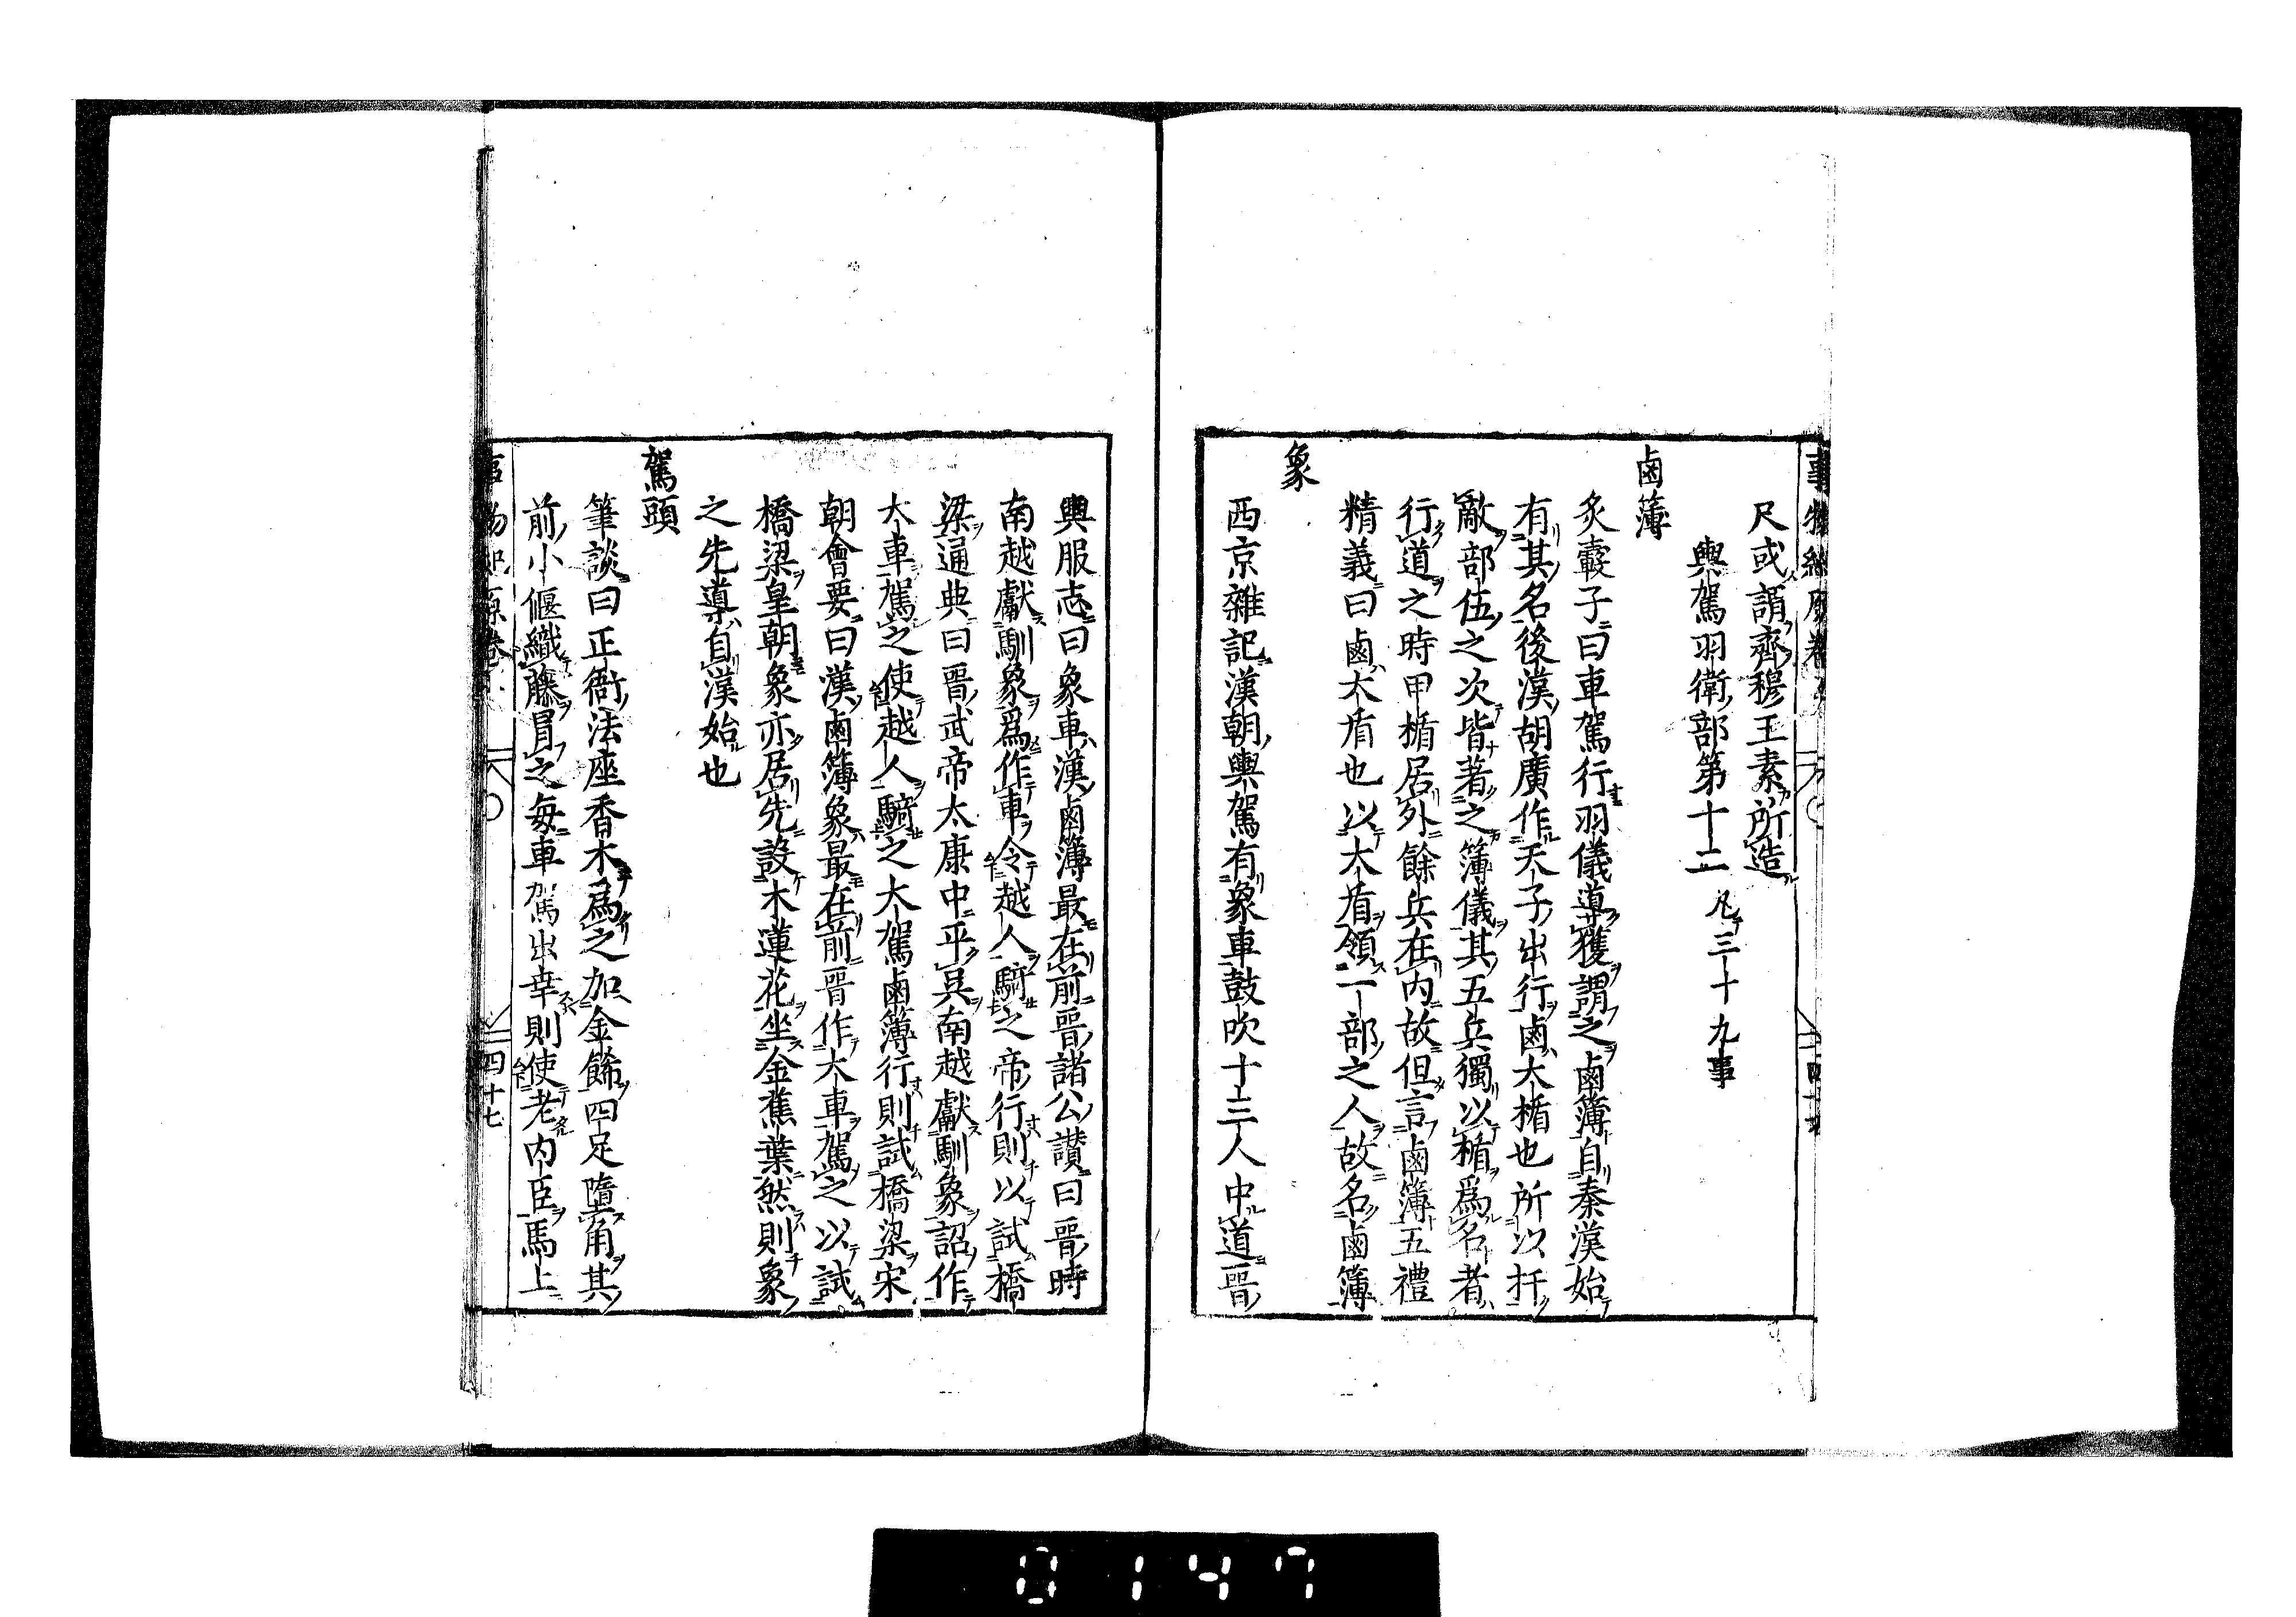 尺或謂齊穆王素所造
輿駕羽衛部第十二 凡三十九事
鹵簿
炙轂子曰車駕行羽儀導護謂之鹵簿自秦漢始
有其名後漢胡廣作天子出行鹵大楯也所以扞
敵部伍之次皆著之簿儀其五兵獨以楯爲名者
行道之時甲楯居外餘兵在内故但言鹵簿五禮
精義曰鹵大盾也以大盾領一部之人故名鹵簿
象
西京雜記漢朝輿駕有象車鼓吹十三人中道晉
輿服志曰象車漢鹵簿最在前晉諸公讚曰晉時
南越獻馴象爲作車令越人騎之帝行則以試橋
梁通典曰晉武帝太康中平吳南越獻馴象詔作
大車駕之使越人騎之大駕鹵簿行則試橋梁宋
朝會要曰漢鹵簿象最在前晉作大車駕之以試
橋梁皇朝象亦居先設木蓮花坐金蕉葉然則象
之先導自漢始也
駕頭
筆談曰正衙法座香木爲之加金飾四足墮角其
前小偃織藤冒之每車駕出幸則使老内臣馬上
四十七
0147